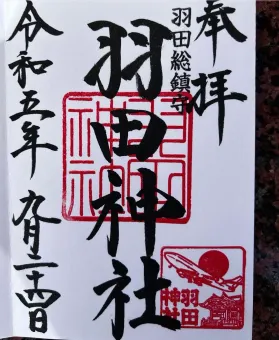 奉拝
羽田総鎮守
羽田神社
令和五年九月二十四日
羽田
神社
羽田
神社